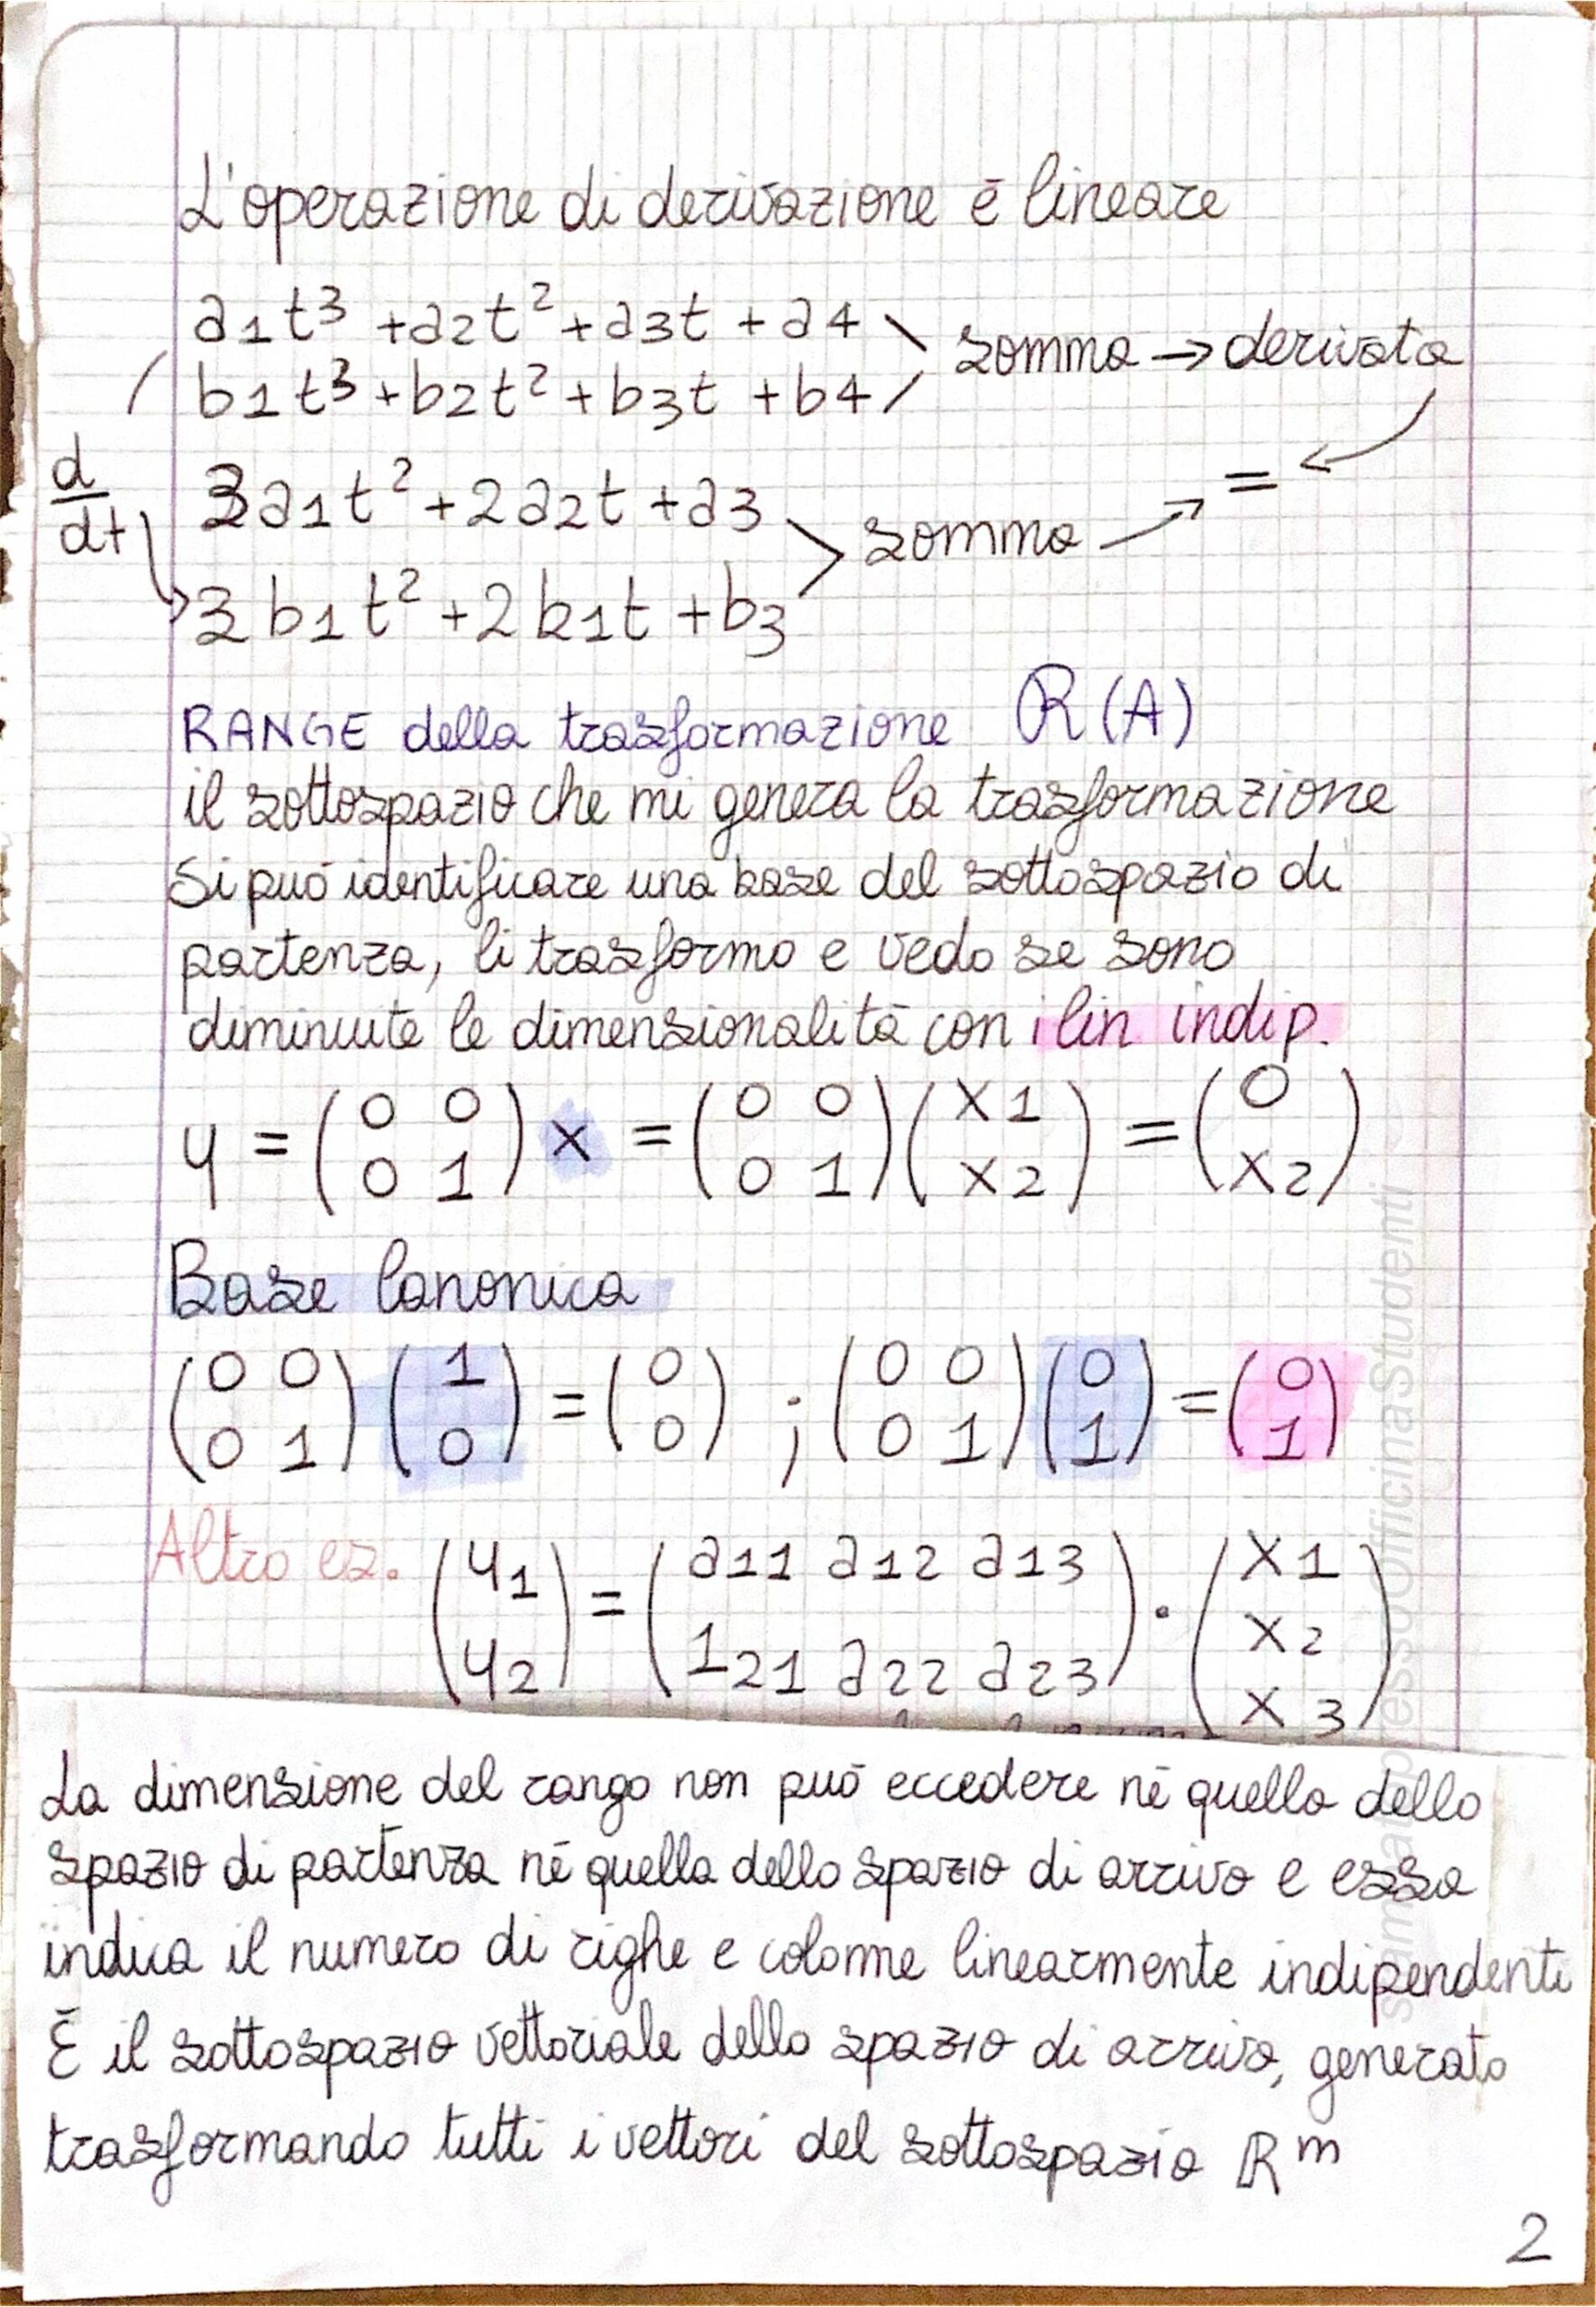 L'operazione di derivazione è lineare
a1t³ + a2t² + a3t + a4 \ somma → derivata
b1t³ + b2t² + b3t + b4 /
d/dt 3a1t² + 2a2t + a3 > somma → =
3b1t² + 2b1t + b3
RANGE della trasformazione R(A)
il sottospazio che mi genera la trasformazione
Si può identificare una base del sottospazio di
partenza, li trasformo e vedo se sono
diminuite le dimensionalità con i lin indip.
y = (0 0; 0 1) x = (0 0; 0 1)(x1; x2) = (0; x2)
Base Canonica
(0 0; 0 1)(1; 0) = (0; 0) ; (0 0; 0 1)(0; 1) = (0; 1)
Altro es. (y1; y2) = (a11 a12 a13; 121 a22 a23) · (x1; x2; x3)
La dimensione del rango non può eccedere nè quella dello
spazio di partenza nè quella dello spazio di arrivo e essa
indica il numero di righe e colonne linearmente indipendenti
È il sottospazio vettoriale dello spazio di arrivo, generato
trasformando tutti i vettori del sottospazio ℝᵐ
2
stampato presso OfficinaStudenti